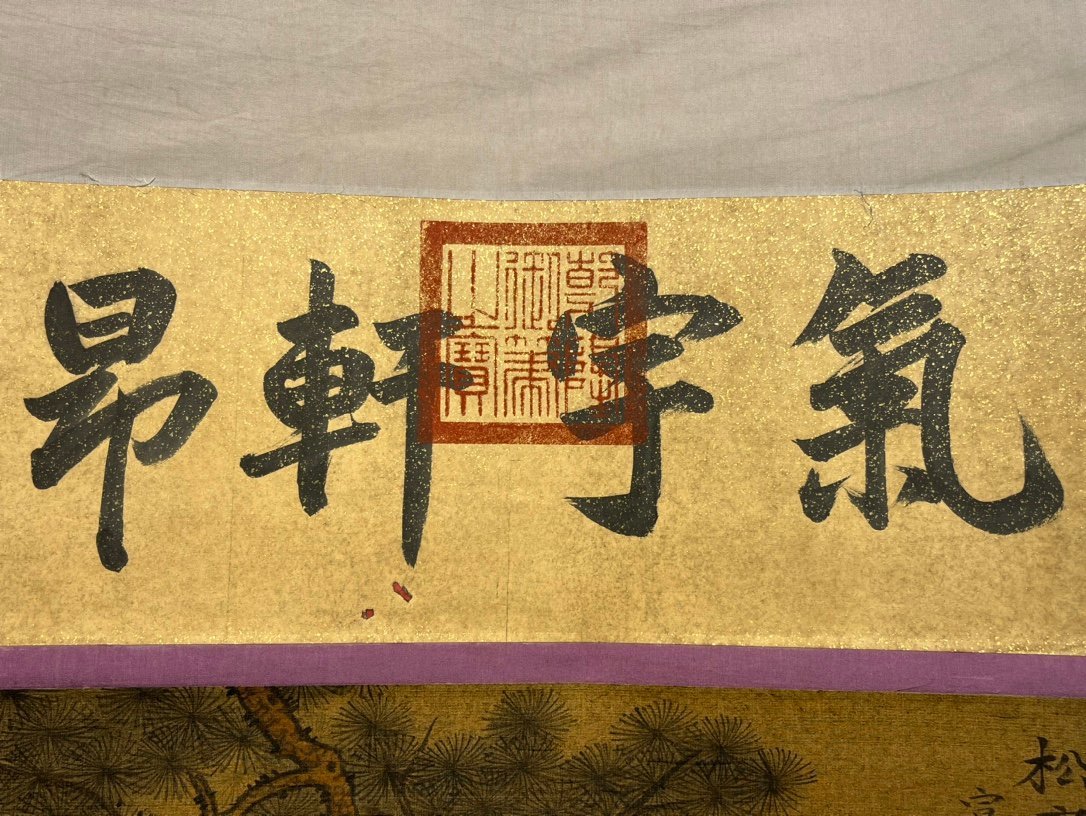 氣宇軒昂
乾隆
御筆
之寶
松
宣